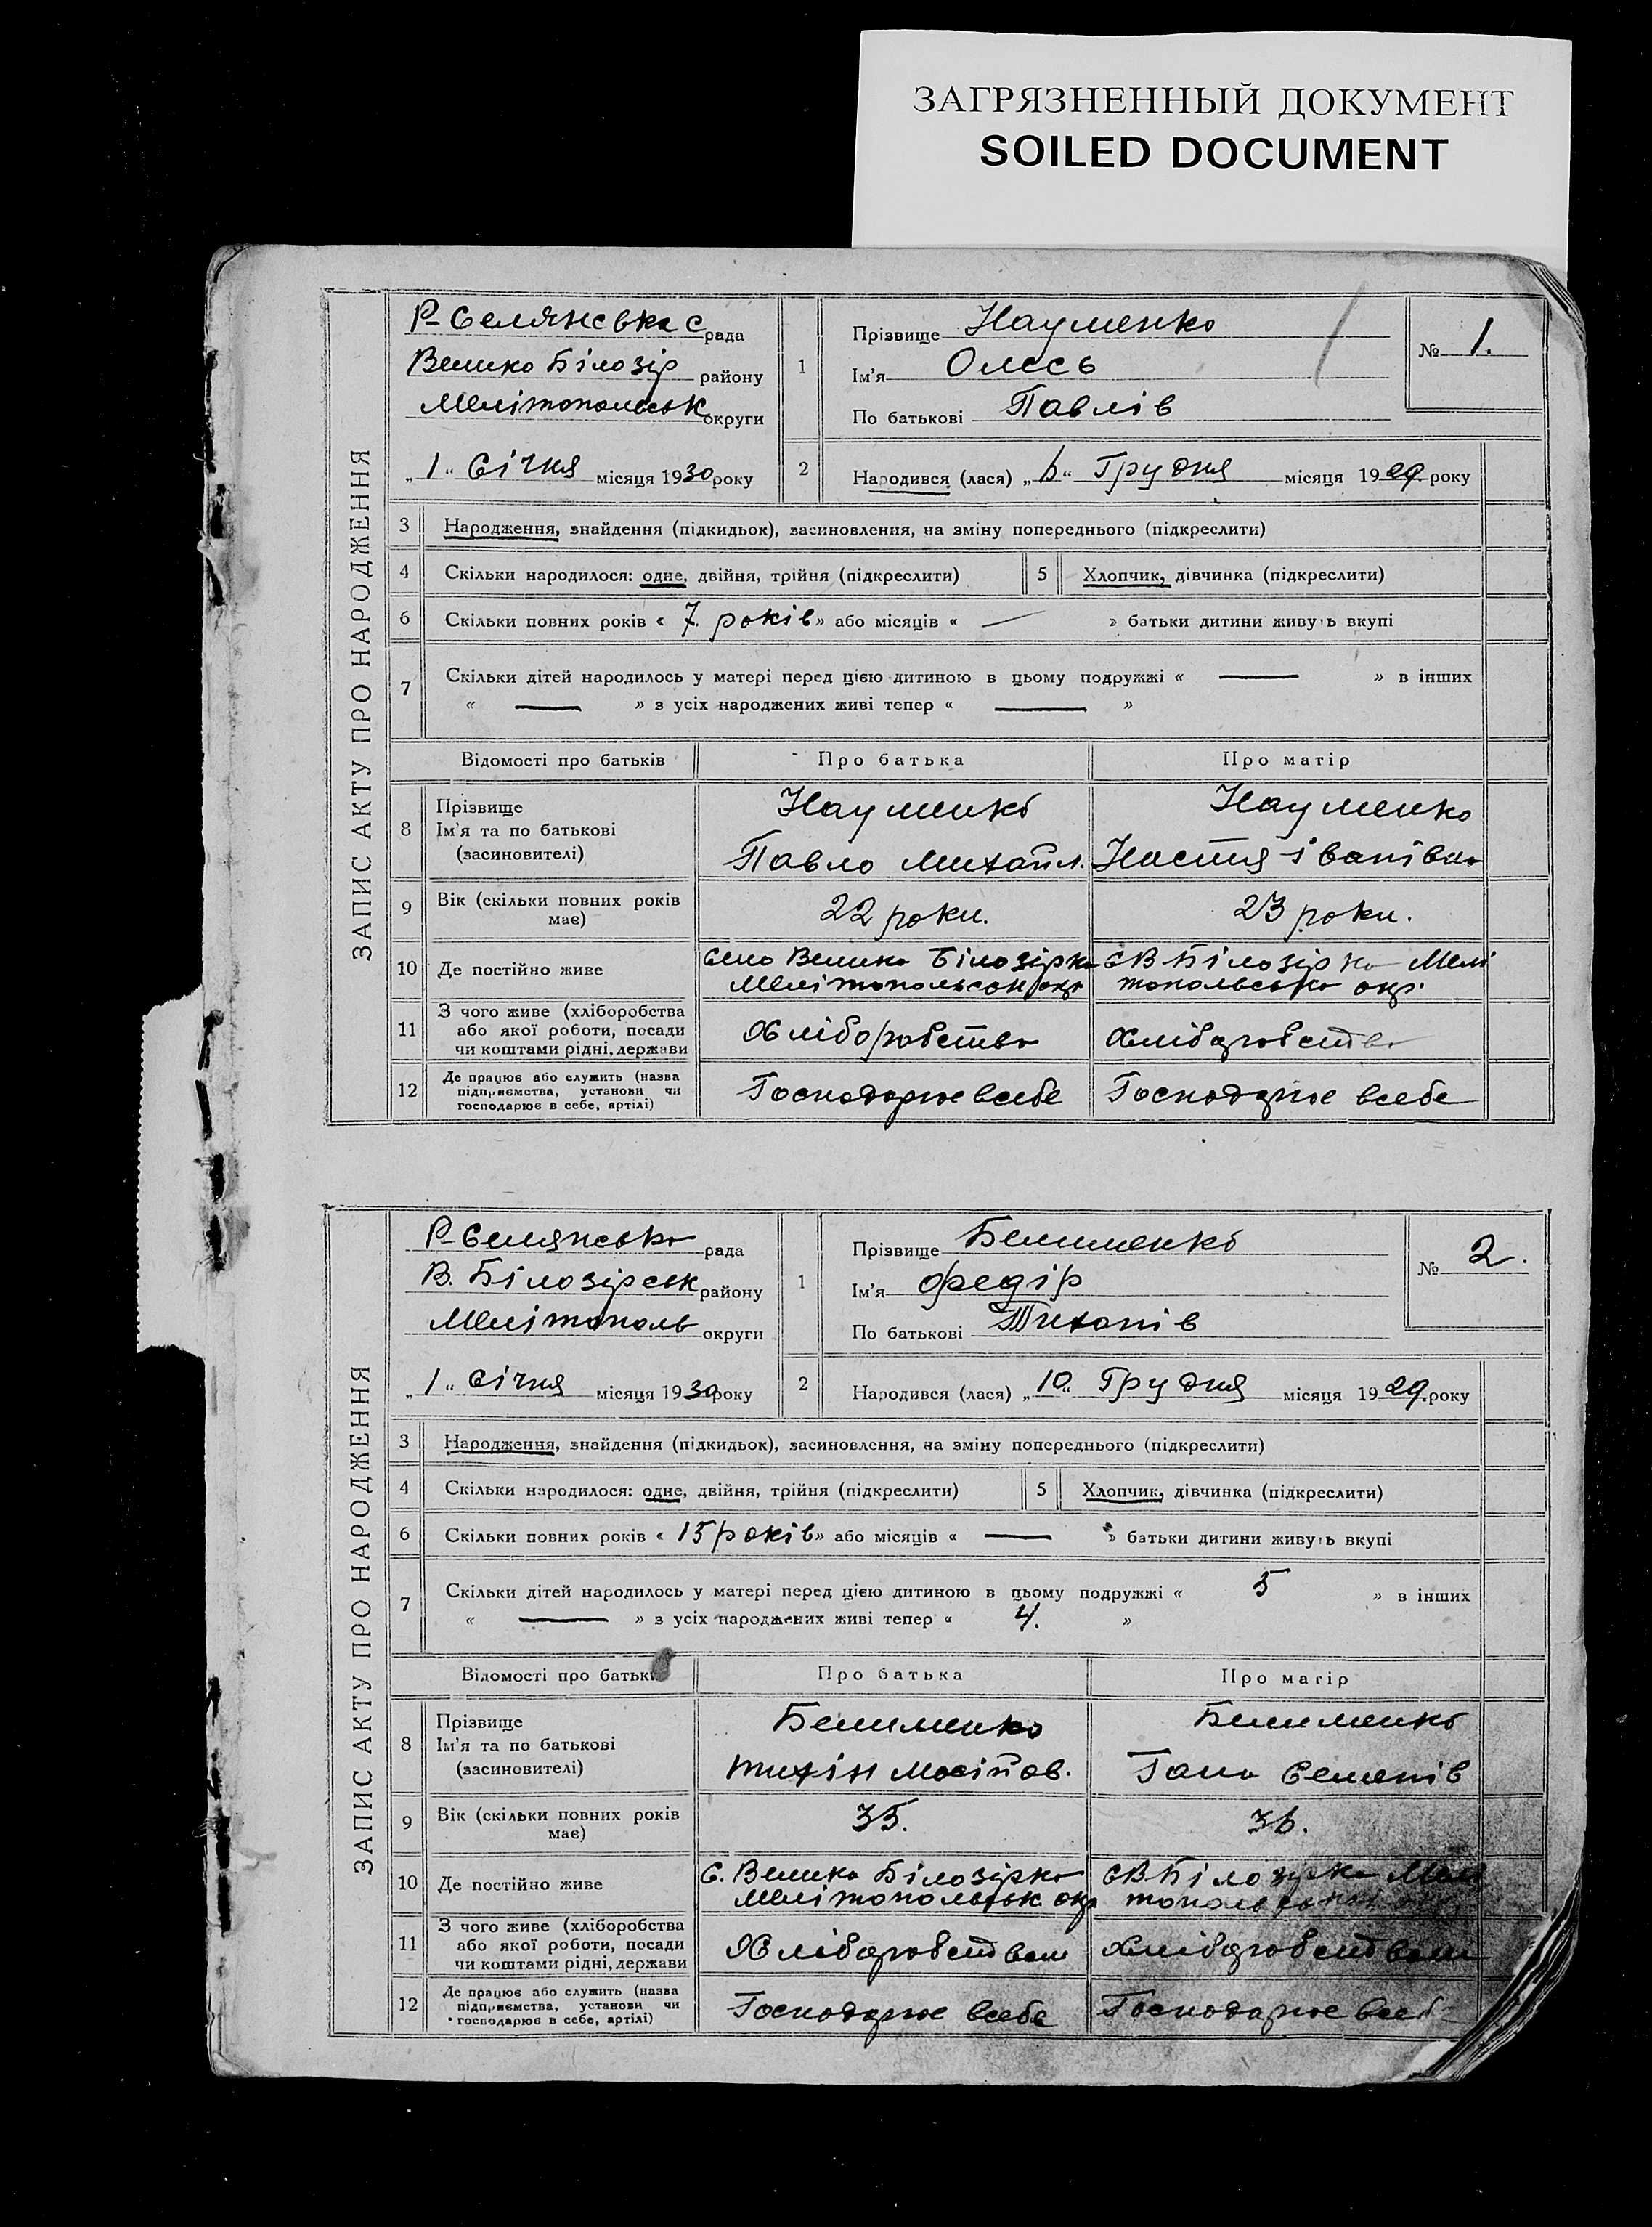 ЗАГРЯЗНЕННЫЙ ДОКУМЕНТ
SOILED DOCUMENT
ЗАПИС АКТУ ПРО НАРОДЖЕННЯ
Р-Селянська с рада
Велико Білозір району
Мелітопольськ округи
„1“ Січня місяця 1930 року
1
Прізвище Науменко
Ім'я Олесь
По батькові Павлів
№ 1.
2
Народився (лася) „6“ Грудня місяця 1929 року
3 Народження, знайдення (підкидьок), засиновлення, на зміну попереднього (підкреслити)
4 Скільки народилося: одне, двійня, трійня (підкреслити) 5 Хлопчик, дівчинка (підкреслити)
6 Скільки повних років « 7. років » або місяців « — » батьки дитини живуть вкупі
7 Скільки дітей народилось у матері перед цією дитиною в цьому подружжі « — » в інших
« — » з усіх народжених живі тепер « — »
Відомості про батьків Про батька Про матір
8 Прізвище
Ім'я та по батькові
(засиновителі)
Науменко
Павло Михайл.
Науменко
Настя Іванівна
9 Вік (скільки повних років
має)
22 роки.
23 роки.
10 Де постійно живе
Село Велика Білозірка
Мелітопольськ окр
С В Білозірка Мелі
топольська окр.
11 З чого живе (хліборобства
або якої роботи, посади
чи коштами рідні, держави
Хліборобство
Хліборобство
12 Де працює або служить (назва
підприємства, установи чи
господарює в себе, артілі)
Господарює всебе
Господарює всебе
ЗАПИС АКТУ ПРО НАРОДЖЕННЯ
Р-Селянська рада
В. Білозірськ району
Мелітополь округи
„1“ Січня місяця 1930 року
1
Прізвище
Ім'я Федір
По батькові Тихонів
№ 2.
2
Народився (лася) „10“ Грудня місяця 1929. року
3 Народження, знайдення (підкидьок), засиновлення, на зміну попереднього (підкреслити)
4 Скільки народилося: одне, двійня, трійня (підкреслити) 5 Хлопчик, дівчинка (підкреслити)
6 Скільки повних років « 15 років » або місяців « — » батьки дитини живуть вкупі
7 Скільки дітей народилось у матері перед цією дитиною в цьому подружжі « 5 » в інших
« — » з усіх народжених живі тепер « 4. »
Відомості про батьків Про батька Про матір
8 Прізвище
Ім'я та по батькові
(засиновителі)
Тихін
Гана Семенів
9 Вік (скільки повних років
має)
35.
36.
10 Де постійно живе
С. Велика Білозірка
Мелітопольськ окр
С В. Білозірка Мелі
11 З чого живе (хліборобства
або якої роботи, посади
чи коштами рідні, держави
Хліборобством
Хліборобством
12 Де працює або служить (назва
підприємства, установи чи
господарює в себе, артілі)
Господарює всебе
Господарює всеб